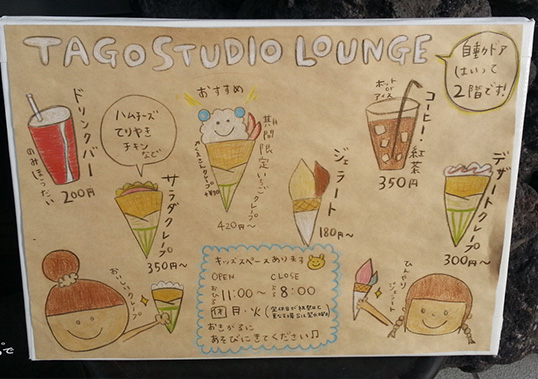 TAGO STUDIO LOUNGE
自動ドア
はいって
2階です!
ドリンクバー
のみほうだい
200円
ハムチーズ
てりやき
チキン
など
サラダクレープ
350円〜
おすすめ
期間限定いちごクレープ
420円〜
ジェラート
180円〜
ホット
or
アイス
コーヒー・紅茶
350円
デザートクレープ
300円〜
おいしいクレープ
キッズスペースあります
OPEN CLOSE
11:00〜 8:00
休 月・火
おきがるに
あそびにきてください♫
ひんやり
ジェラート